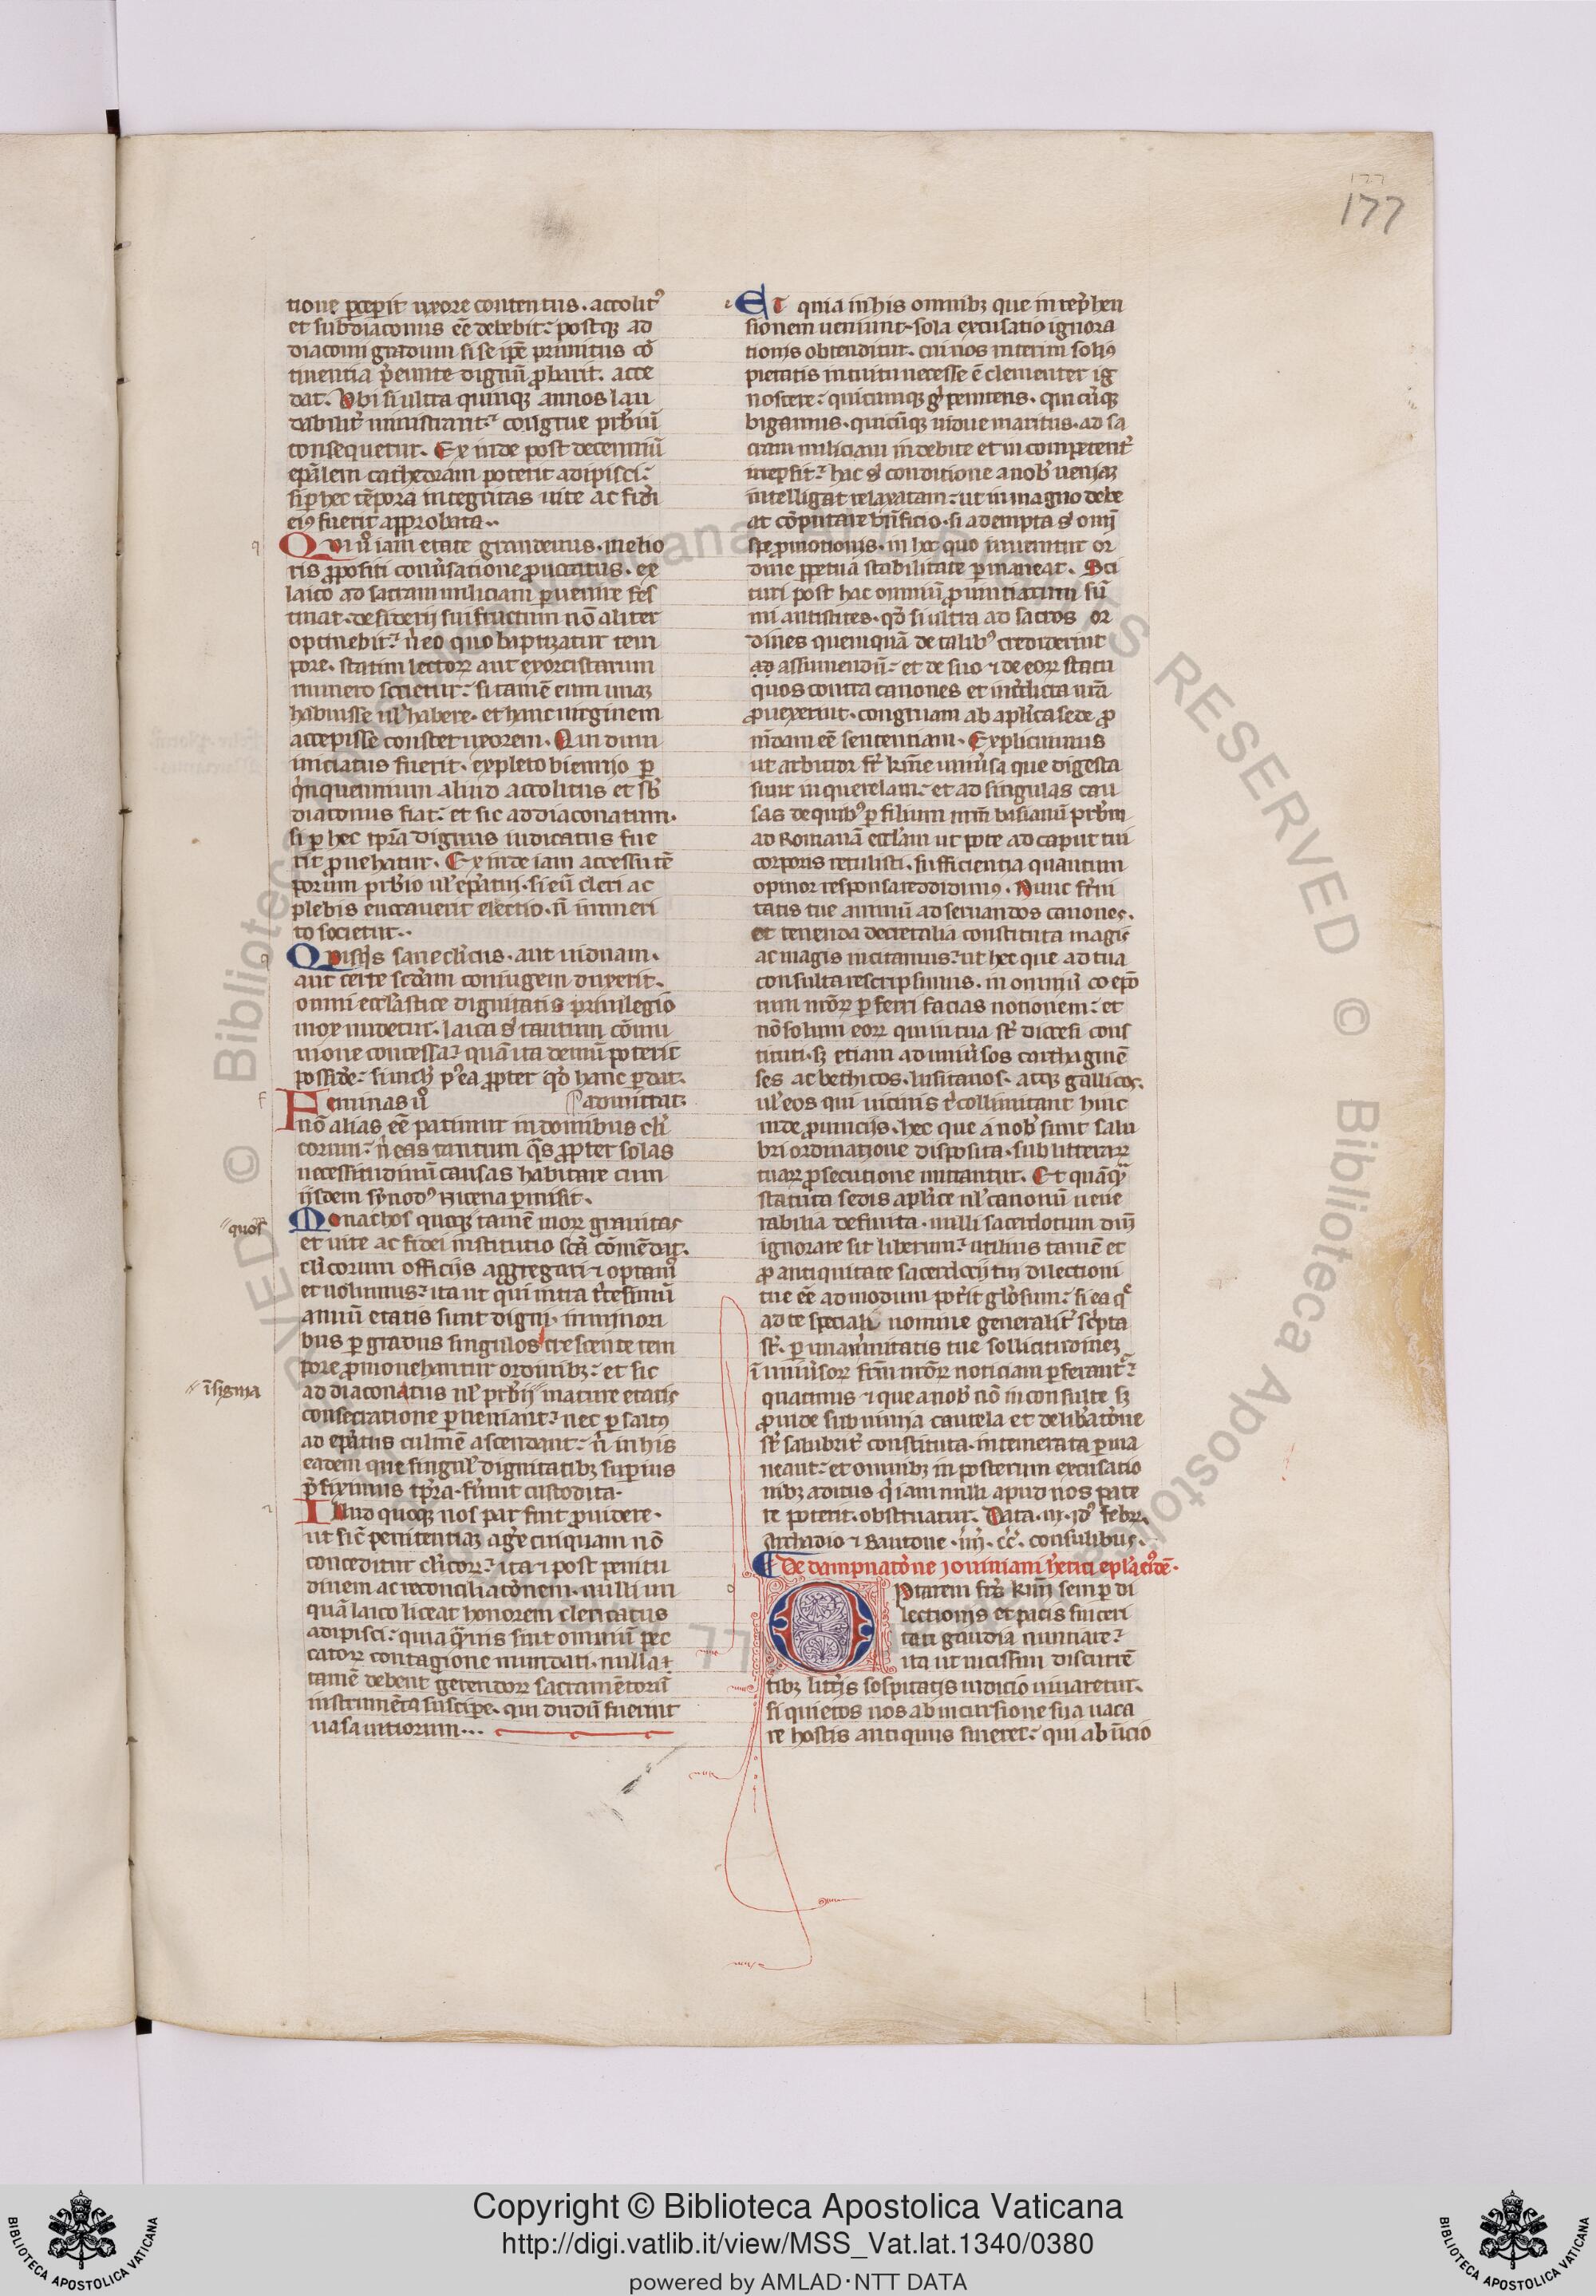 177
177
tione p̱cepit uxore contentus. accolit᷒
et subdiaconus eē debebit: postq̱ȝ ad
diaconij gradum si se ip̄e primitus cō
tinentia p̄eunte dignū ꝓbarit. acce
dat. Vbi si ultra quinqȝ annos lau
dabilit᷒ ministrarit: congrue prb̄iū
consequetur. Ex inde post decenniū
ep̄alem cathedram poterit adipisci:
si ꝑ hec tēpora integritas uite ac fid̄i
ei᷒ fuerit approbata..
Qui u̾o iam etate grandeuus. melio
ris ꝓpositi conu̾satione ꝓuocatus. ex
laico ad sacram miliciam ꝑuenire fes
tinat. desiderij sui fructum nō aliter
optinebit: n̄ eo quo baptizatur tem
pore. statim lectoꝝ aut exorcistarum
numero societur: si tamē eum unaȝ
habuisse ul̾ habere. et hanc uirginem
accepisse constet uxorem. Qui dum
iniciatus fuerit. expleto biennio ꝑ
q̄nquennium aliud accolitus et sb̄
diaconus fiat: et sic ad diaconatum.
si ꝑ hec tp̄ra dignus iudicatus fue
rit ꝓuehatur. Ex inde iam accessu tē
porum prb̄io ul̾ ep̄atui. si eū cleri ac
plebis euocauerit electio. n̄ immeri
to societur..
Qvisq̄s sane cl̄icus. aut uiduam.
aut certe scd̄am coniugem duxerit.
omni eccl̄astice dignitatis priuilegio
mox nudetur. laica s̾ tantum cōmu
nione concessa: quā ita demū poterit
possid̄e: si nich̾ p̾ea ꝓpter qd̾ hanc ꝑdat.
Feminas u̾o admittat.
nō alias eē patimur in domibus cl̄i
corum: n̄ eas tantum q̄s ꝓpter solas
necessitudinū causas habitare cum
ijsdem synod᷒ Nicena ꝑmisit.
quos
Monachos quoqȝ tamē moꝝ grauitas
et uite ac fidei institutio sc̄a cōmēdat.
cl̄icorum officijs aggregari ⁊ optam᷒
et uolumus: ita ut qui intra t̾cesimū
annū etatis sunt digni. in minori
bus ꝑ gradus singulos crescente tem
pore ꝓmouehantur ordinibȝ: et sic
īsigma
ad diaconatus ul̾ prb̄ij mature etatis
consecratione ꝑueniant: nec ꝑ saltu᷒
ad ep̄atus culmē ascendant: n̄ in his
eadem que singul̾ dignitatibȝ superius
p̄fiximus tp̄ra. f̾nint custodita.
Illud quoqȝ nos par fuit ꝓuidere.
ut sic̄ penitentiaȝ ag̾e cuiquam nō
conceditur cl̄icoꝝ: ita ⁊ post penitu
dinem ac reconciliat̾onem. nulli un
quā laico liceat honorem clericatus
adipisci: quia q̄mis sint omniū pec
catoꝝ contagione mundati. nulla ⁊
tamē debent gerendoꝝ sacramētorū
instrumēta suscip̾e. qui dudū fuerint
uasa uitiorum...
Et quia in his omnibȝ que in rep̾hen
sionem ueniunt. sola excusatio ignora
tionis obtenditur. cui nos interim soli᷒
pietatis intuitu necesse ē clementer ig
noscere: quicumqȝ g̾ penitens. quicūqȝ
bigamus. quicūqȝ uidue maritus. ad sa
cram miliciam indebite et in competent᷒
irrepsit: hac s̾ conditione a nob᷒ ueniaȝ
intelligat relaxatam: ut in magno debe
at cōputare bn̄ficio. si adempta s̾ omī
spe ꝓmotionis. in hoc quo inuenitur or
dine ꝑpetua stabilitate ꝑmaneat. Sci
turi post hac omniū ꝓuintiarum sū
mi antistites. qd̾ si ultra ad sacros or
dines quemquā de talib᷒ crediderint
ad assumendū: et de suo ⁊ de eoꝝ statu
quos contra canones et int̾dicta nr̄a
ꝓuexerint. congruam ab apl̄ica sede ꝓ
m̄dam eē sententiam. Explicuimus
ut arbitror fr̄ kr̄me uniu̾sa que digesta
sunt in querelam: et ad singulas cau
sas de quib᷒ ꝑ filium nr̄m basianū prb̄m
ad Romanā eccl̄am ut pote ad caput tui
corporis retulisti. sufficientia quantum
opinor responsa reddidim᷒. Nunc fr̄ni
tatis tue animū ad seruandos canones.
et tenenda decretalia constituta magis
ac magis incitamus: ut hec que ad tua
consulta rescripsimus. in omniū coep̄o
rum nr̄oꝝ ꝑferri facias notionem: et
nō solum eoꝝ qui in tua st̄ diocesi cons
tituti. sȝ etiam ad uniu̾sos carthaginē
ses ac bethicos. lusitanos. atqȝ gallicos.
ul̾ eos qui uicinis t̾ collimitant hinc
inde ꝓuincijs. hec que a nob᷒ sunt salu
bri ordinatione disposita. sub litteraꝝ
tuaꝝ ꝓsecutione mittantur. Et quāqȝ̄
statuta sedis apl̄ice ul̾ canonū uene
rabilia definita. nulli sacerdotum dn̄i
ignorare sit liberum: utilius tamē et
ꝓ antiquitate sacerdocij tui dilectioni
tue eē admodum pot̾it gl̄osum: si ea q̄
ad te speciali nomine generalit᷒ sc̾pta
st̄. ꝑ unanimitatis tue sollicitudineȝ
ī uniu̾soꝝ fr̄m nr̄oꝝ noticiam ꝑferant᷒:
quatinus ⁊ que a nob᷒ nō inconsulte sȝ
ꝓuide sub nimia cautela et delib̾at̾one
st̄ salubrit᷒ constituta. intemerata ꝑma
neant: et omnibȝ in posterum excusatio
nibȝ aditus q̾ iam nulli apud nos pate
re poterit. obstruatur. Data. iij. id᷒ febꝝ.
Archadio ⁊ Bautone .uiris. cc̄. consulibus.
De dampnat̾one Iouiniani h̾etici epl̄a ei᷒dē.
Optarem fr̄s kr̄mi semꝑ di
lectionis et pacis sinceri
tati gaudia nuntiare:
ita ut uicissim discurrē
tibȝ litt̾is sospitatis indicio iuuaretur.
si quietos nos ab incursione sua uaca
re hostis antiquus sineret: qui ab ī̾cio
Copyright © Biblioteca Apostolica Vaticana
http://digi.vatlib.it/view/MSS_Vat.lat.1340/0380
powered by AMLAD·NTT DATA